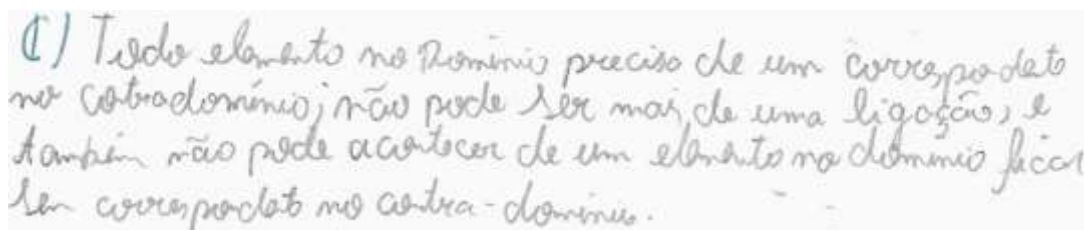 C) Todo elemento no Domínio precisa de um correspodete
no cotradomínio; não pode ser mais de uma ligação, e
também não pode acontecer de um elemento no domínio ficar
sem correspodete no contra-domínio.